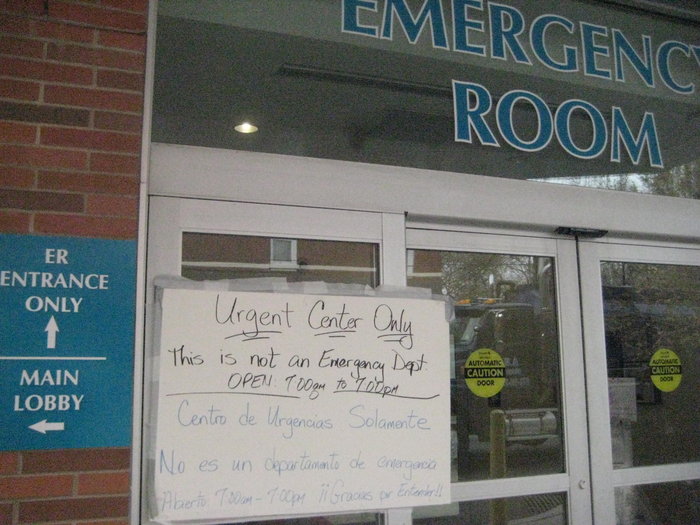 EMERGENCY
ROOM
ER
ENTRANCE
ONLY
MAIN
LOBBY
Urgent Center Only
This is not an Emergency Dept
OPEN: 7:00am to 7:00pm
Centro de Urgencias Solamente
No es un departamento de emergencia
Abierto: 7:00am - 7:00pm ¡¡Gracias por Entender!!
AUTOMATIC
CAUTION
DOOR
AUTOMATIC
CAUTION
DOOR